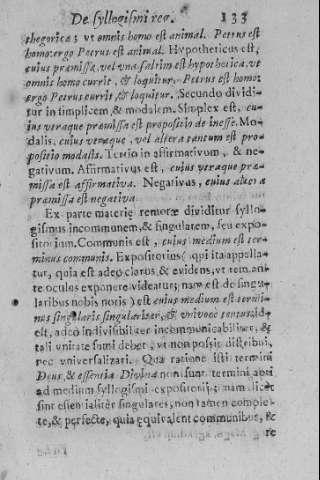 De syllogismi rec. 133
thegorica; vt omnis homo est animal. Petrus est
homo: ergo Petrus est animal. Hypotheticus est,
cuius præmissa, vel vna saltim est hypothetica, vt
omnis homo currit, & loquitur. Petrus est homo:
ergo Petrus currit, & loquitur. Secundo diuidi-
tur in simplicem, & modalem. Simplex est, cu-
ius veraque præmissa est propositio de inesse. Mo-
dalis, cuius veraque, vel altera tantum est pro-
positio modalis. Tertio in affirmatiuum, & ne-
gatiuum. Affirmatiuus est, cuius veraque præ-
missa est affirmatiua. Negatiuus, cuius altera
præmissa est negatiua.
Ex parte materiæ remotæ diuiditur syllo-
gismus in communem, & singularem, seu expo-
sitorium. Communis est, cuius medium est ter-
minus communis. Expositorius (qui ita appella-
tur, quia est adeo clarus, & euidens, vt rem an-
te oculos exponere videatur; nam est de singu-
laribus nobis notis) est cuius medium est termi-
nus singularis singulariter, & vniuoce
est, adeo indiuisibiliter incommunicabiliter, &
tali vnitate sumi debet, vt non possit distribui,
nec vniuersalizari. Qua ratione isti termini
Deus, & essentia Diuina non sunt termini apti
ad medium syllogismi expositorij; nam licet
sint essentialiter singulares, non tamen comple-
te, & perfecte, quia equiualent communibus, &
re